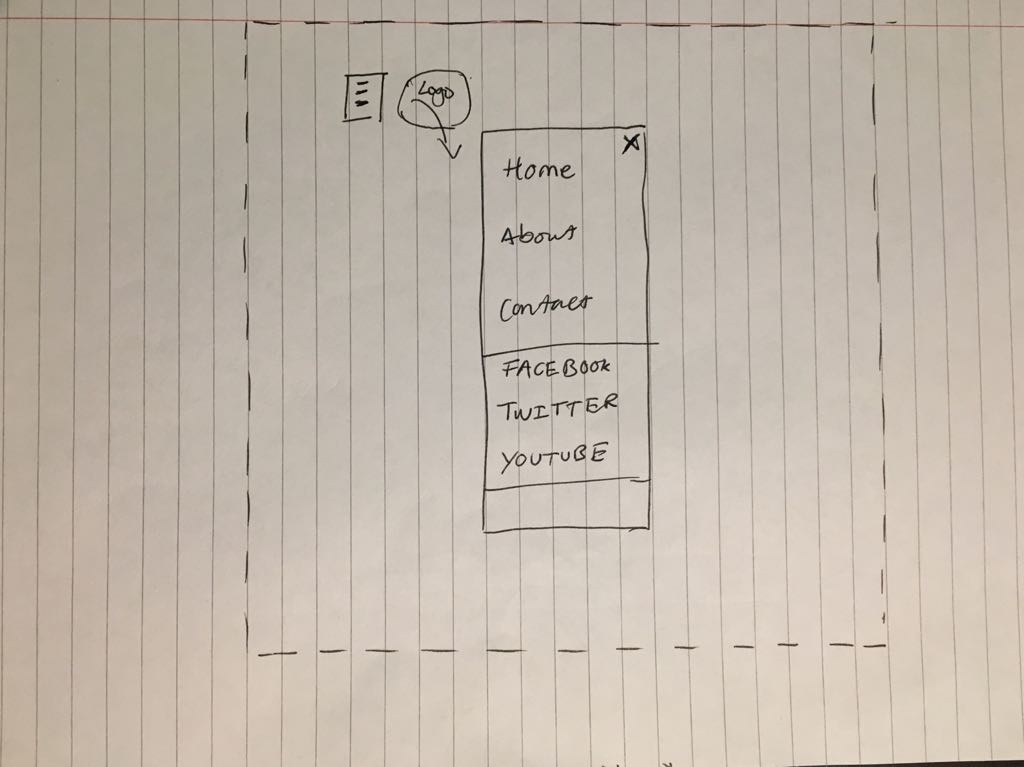 Logo
X
Home
About
Contact
FACEBOOK
TWITTER
YOUTUBE